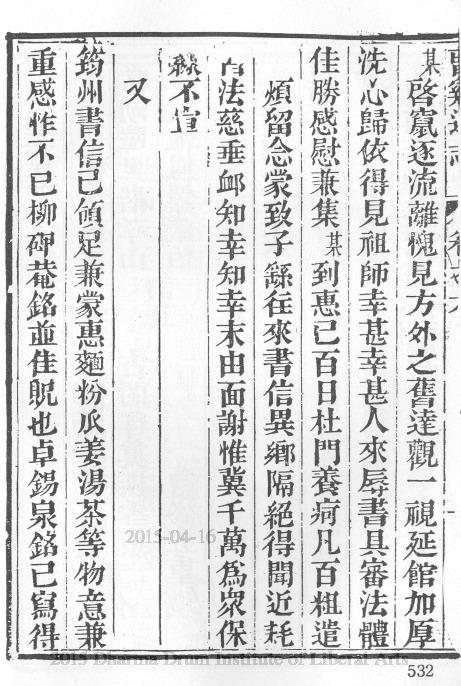 曹谿通志
某啓竄逐流離愧見方外之舊達觀一視延館加厚
洗心歸依得見祖師幸甚幸甚人來辱書具審法體
佳勝感慰兼集某到惠已百日杜門養痾凡百粗遣
煩留念蒙致子繇往來書信異鄉隔絕得聞近耗
皆法慈垂卹知幸知幸末由面謝惟冀千萬爲衆保
練不宣
又
筠州書信已領足兼蒙惠麵粉瓜姜湯茶等物意兼
重感怍不已柳碑菴銘並佳貺也卓錫泉銘已寫得
532
2015-04-16
2015 Dharma Drum Institute of Liberal Arts